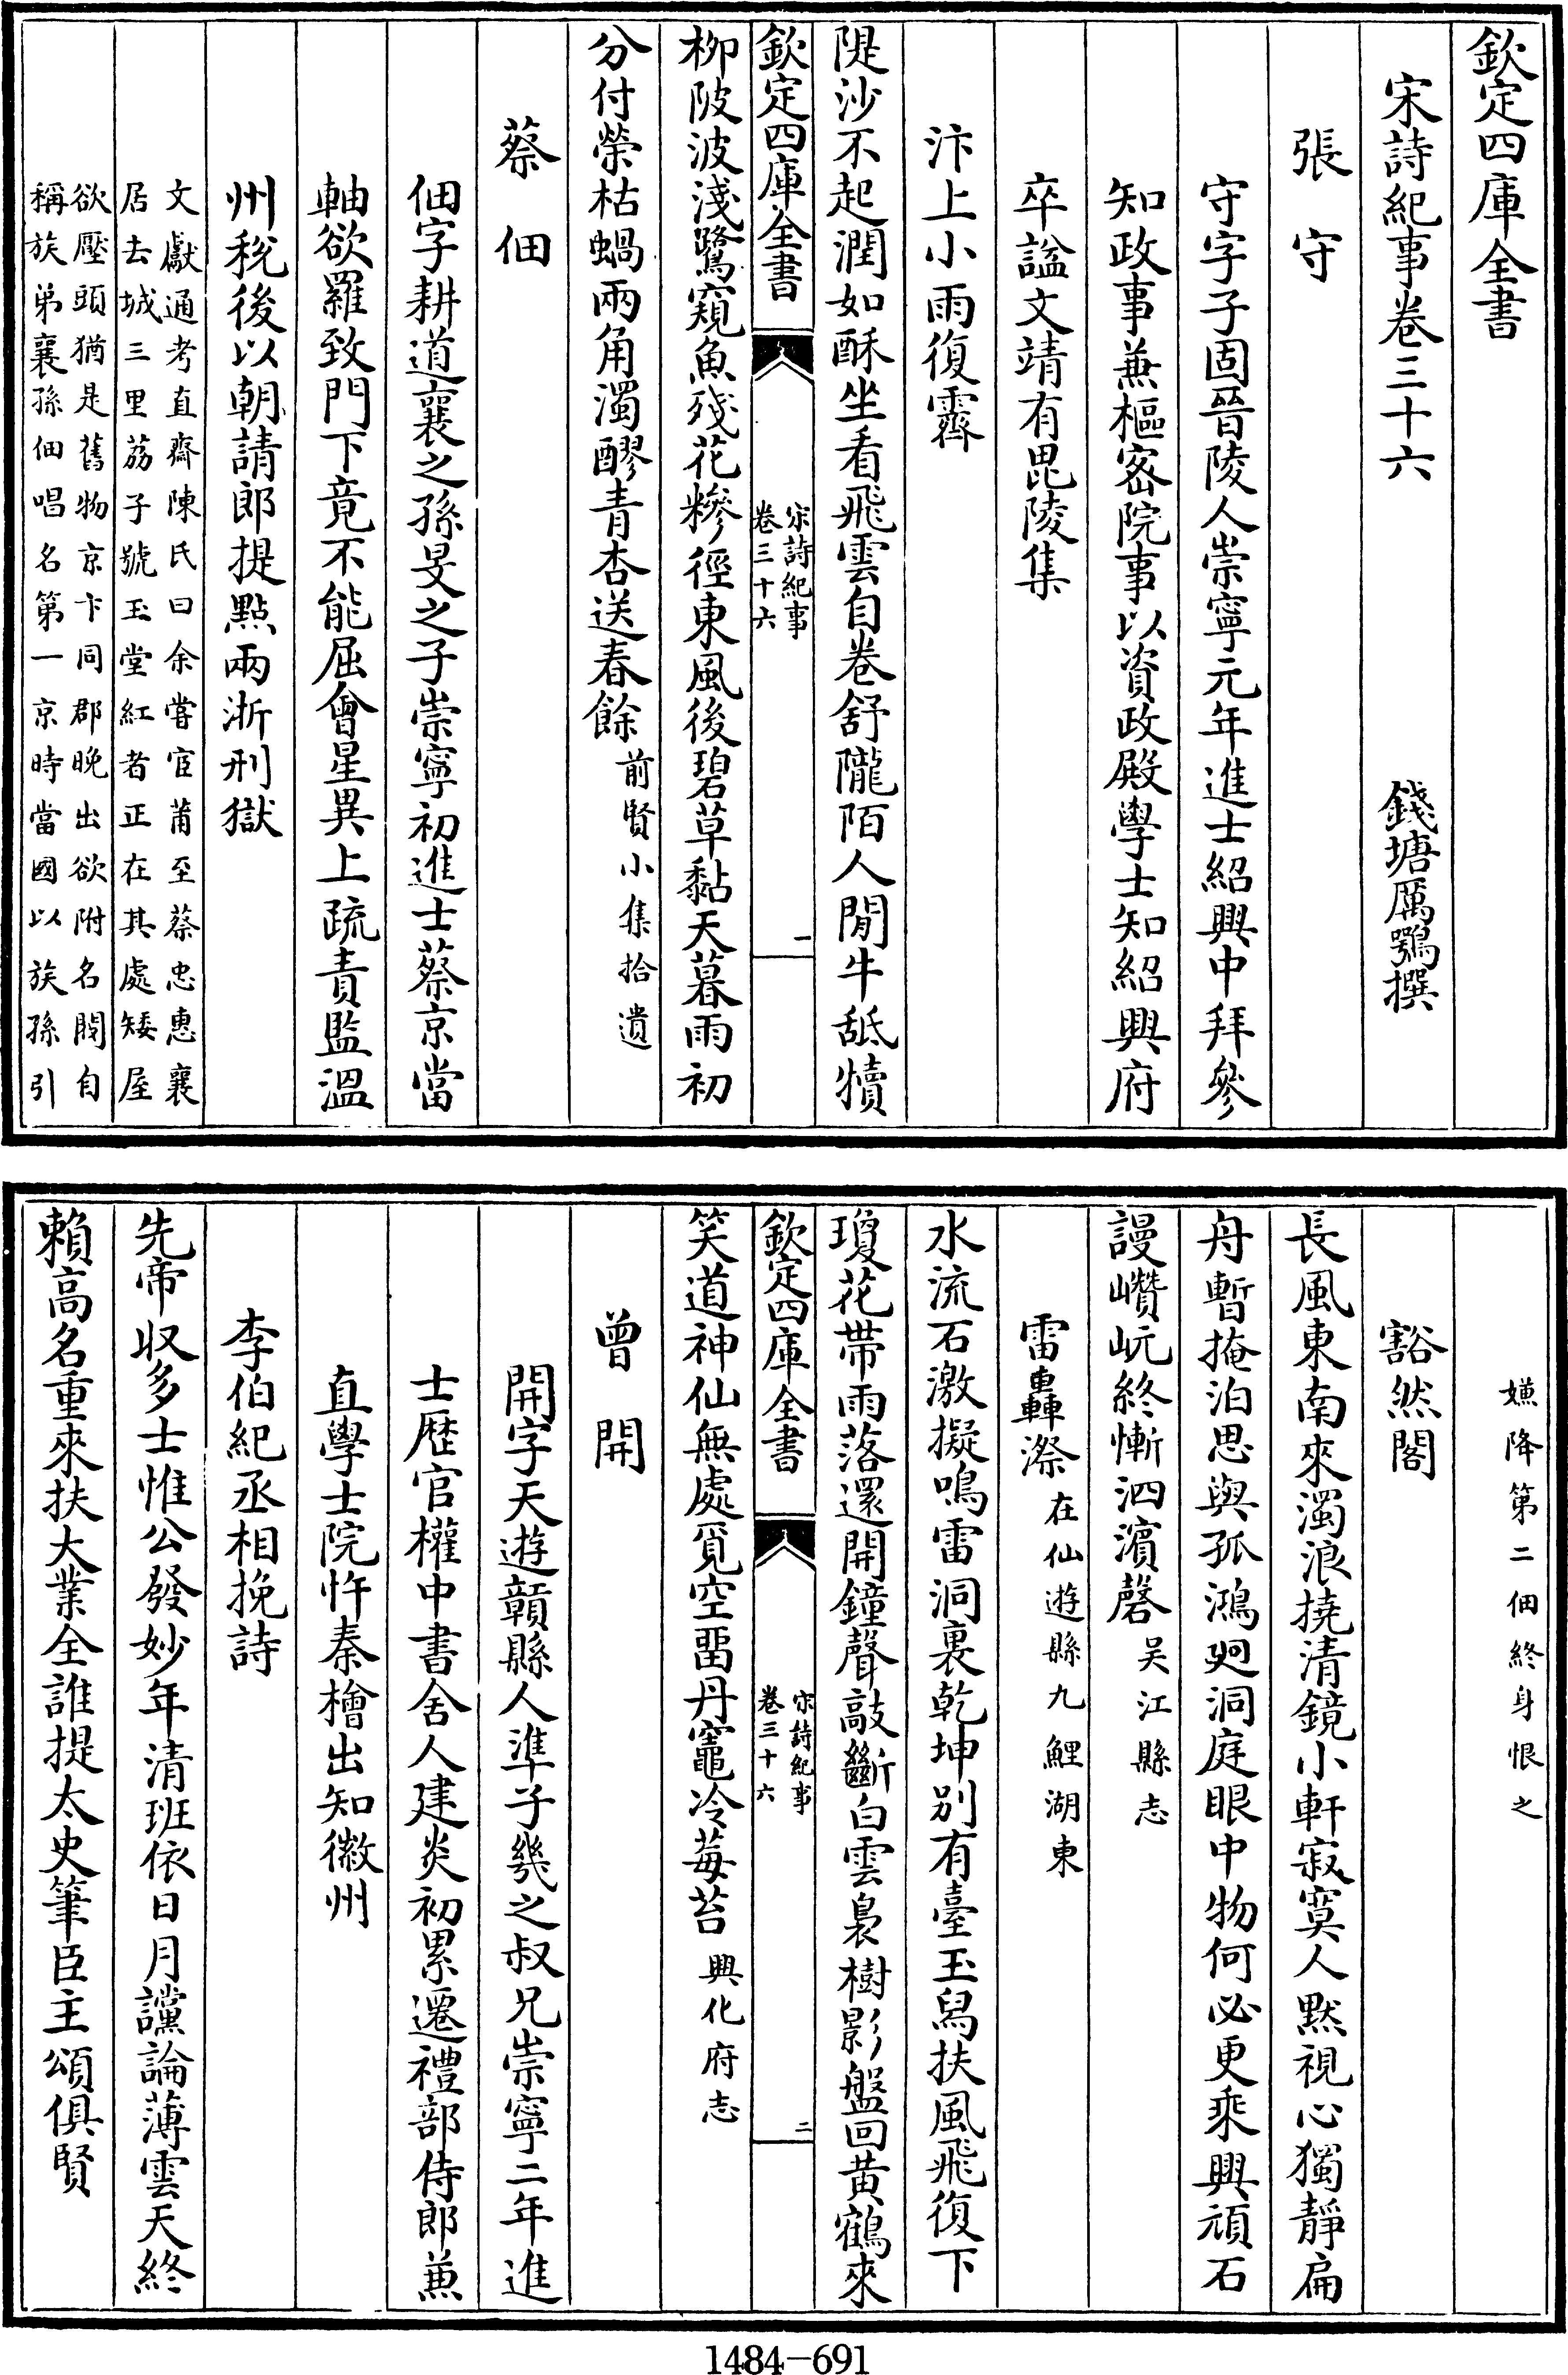 欽定四庫全書
宋詩紀事卷三十六　錢塘厲鶚撰
張守
守字子固晉陵人崇寧元年進士紹興中拜參
知政事兼樞密院事以資政殿學士知紹興府
卒諡文靖有毘陵集
汴上小雨復霽
隄沙不起潤如酥坐看飛雲自卷舒隴陌人閒牛舐犢
欽定四庫全書
宋詩紀事
卷三十六
一
柳陂波淺鷺窺魚殘花糝徑東風後碧草黏天暮雨初
分付榮枯蝸兩角濁醪青杏送春餘前賢小集拾遺
蔡佃
佃字耕道襄之孫旻之子崇寧初進士蔡京當
軸欲羅致門下竟不能屈會星異上疏責監溫
州稅後以朝請郎提點兩浙刑獄
文獻通考直齋陳氏曰余嘗宦莆至蔡忠惠襄
居去城三里荔子號玉堂紅者正在其處矮屋
欲壓頭猶是舊物京卞同郡晚出欲附名閥自
稱族弟襄孫佃唱名第一京時當國以族孫引
嫌降第二佃終身恨之
豁然閣
長風東南來濁浪撓清鏡小軒寂寞人默視心獨靜扁
舟暫掩泊思與孤鴻迥洞庭眼中物何必更乘興頑石
謾巑岏終慚泗濱磬吴江縣志
雷轟漈在仙遊縣九鯉湖東
水流石激擬鳴雷洞裏乾坤别有臺玉舄扶風飛復下
瓊花帶雨落還開鐘聲敲斷白雲裊樹影盤回黄鶴來
欽定四庫全書
宋詩紀事
卷三十六
二
笑道神仙無處覓空畱丹竈冷莓苔興化府志
曾開
開字天遊贛縣人準子幾之叔兄崇寧二年進
士歷官權中書舍人建炎初累遷禮部侍郎兼
直學士院忤秦檜出知徽州
李伯紀丞相挽詩
先帝収多士惟公發妙年清班依日月讜論薄雲天終
賴高名重來扶大業全誰提太史筆臣主頌俱賢
1484-691